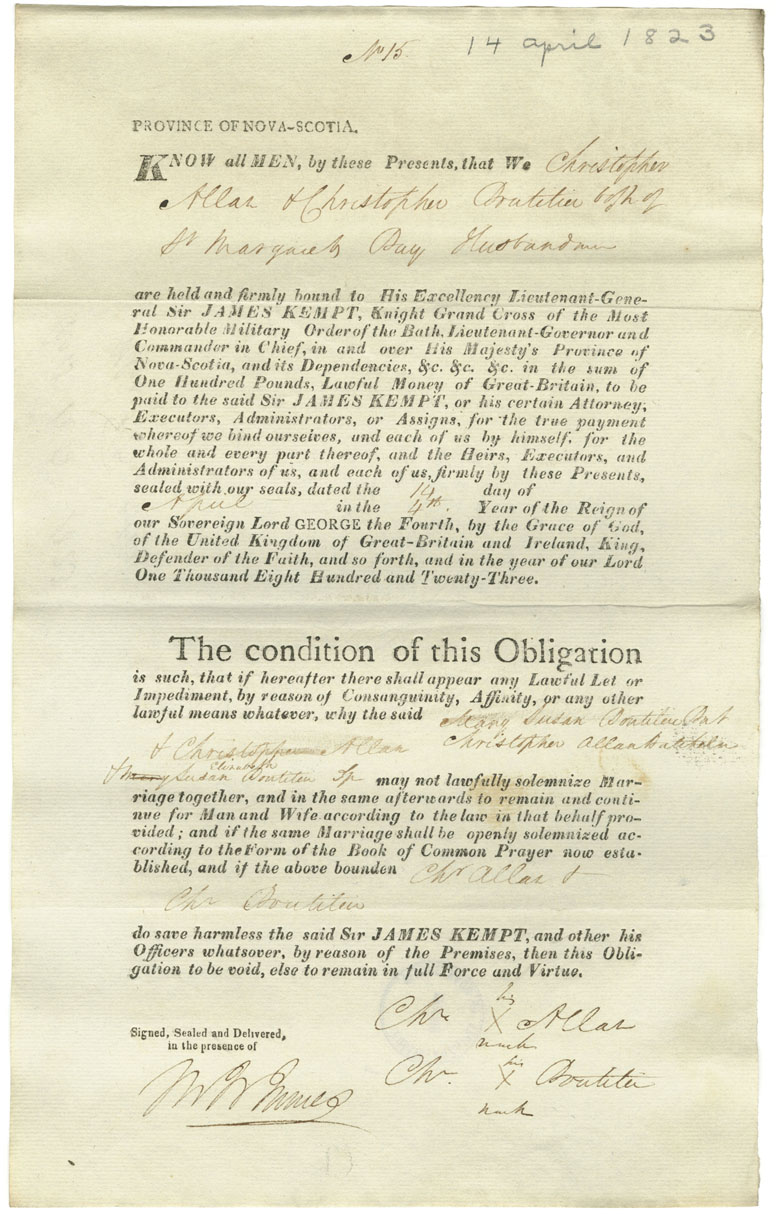 No 15. 14 april 1823
PROVINCE OF NOVA-SCOTIA.
KNOW all MEN, by these Presents, that We Christopher
Allan & Christopher Boutilier both of
St Margarets Bay Husbandmen
are held and firmly bound to His Excellency Lieutenant-Gene-
ral Sir JAMES KEMPT, Knight Grand Cross of the Most
Honorable Military Order of the Bath, Lieutenant-Governor and
Commander in Chief, in and over His Majesty's Province of
Nova-Scotia, and its Dependencies, &c. &c. &c. in the sum of
One Hundred Pounds, Lawful Money of Great-Britain, to be
paid to the said Sir JAMES KEMPT, or his certain Attorney,
Executors, Administrators, or Assigns, for the true payment
whereof we bind ourselves, and each of us by himself, for the
whole and every part thereof, and the Heirs, Executors, and
Administrators of us, and each of us, firmly by these Presents,
sealed with our seals, dated the 14 day of
April in the 4th. Year of the Reign of
our Sovereign Lord GEORGE the Fourth, by the Grace of God,
of the United Kingdom of Great-Britain and Ireland, King,
Defender of the Faith, and so forth, and in the year of our Lord
One Thousand Eight Hundred and Twenty-Three.
The condition of this Obligation
is such, that if hereafter there shall appear any Lawful Let or
Impediment, by reason of Consanguinity, Affinity, or any other
lawful means whatever, why the said Mary Susan Boutilier
& Christopher Allan Christopher Allan
Elizabeth
& Mary Susan Boutilier Sp may not lawfully solemnize Mar-
riage together, and in the same afterwards to remain and conti-
nue for Man and Wife according to the law in that behalf pro-
vided; and if the same Marriage shall be openly solemnized ac-
cording to the Form of the Book of Common Prayer now esta-
blished, and if the above bounden Chr Allan &
Chr Boutilier
do save harmless the said Sir JAMES KEMPT, and other his
Officers whatsover, by reason of the Premises, then this Obli-
gation to be void, else to remain in full Force and Virtue.
his
Chr X Allan
mark
Signed, Sealed and Delivered,
in the presence of
his
Chr. X Boutilier
mark